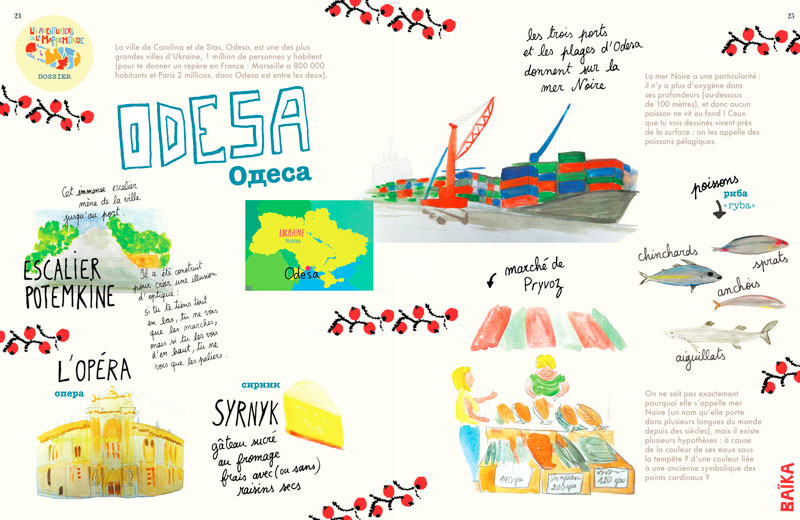 24
25
Les Aventuriers
de la Mappemonde
DOSSIER
La ville de Carolina et de Stas, Odesa, est une des plus
grandes villes d'Ukraine, 1 million de personnes y habitent
(pour te donner un repère en France : Marseille a 800 000
habitants et Paris 2 millions, donc Odesa est entre les deux).
ODESA
Одеса
les trois ports
et les plages d'Odesa
donnent sur la
mer Noire
La mer Noire a une particularité :
il n'y a plus d'oxygène dans
ses profondeurs (au-dessous
de 100 mètres), et donc aucun
poisson ne vit au fond ! Ceux
que tu vois dessinés vivent près
de la surface : on les appelle des
poissons pélagiques.
Cet immense escalier
mène de la ville
jusqu'au port.
ESCALIER
POTEMKINE
Il a été construit
pour créer une illusion
d'optique :
si tu te tiens tout
en bas, tu ne vois
que les marches,
mais si tu les vois
d'en haut, tu ne
vois que les paliers.
UKRAINE
Odesa
poissons
риба
«ryba»
chinchards
sprats
anchois
aiguillats
marché de
Pryvoz
L'OPÉRA
опера
сирник
SYRNYK
gâteau sucré
au fromage
frais avec (ou sans)
raisins secs
140 грн
200 грн
120 грн
On ne sait pas exactement
pourquoi elle s'appelle mer
Noire (un nom qu'elle porte
dans plusieurs langues du monde
depuis des siècles), mais il existe
plusieurs hypothèses : à cause
de la couleur de ses eaux sous
la tempête ? d'une couleur liée
à une ancienne symbolique des
points cardinaux ?
BAÏKA